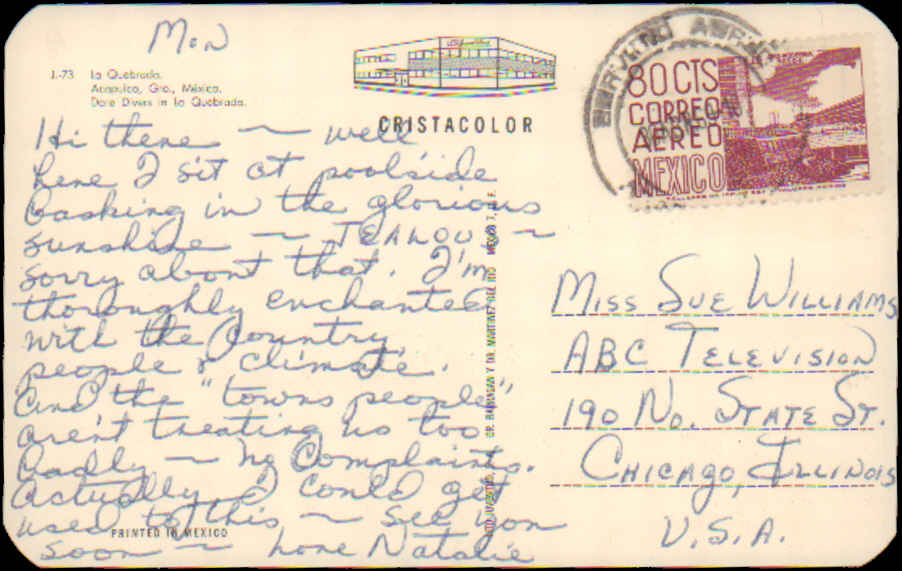 Mon
J-73 la Quebrada.
Acapulco, Gro., México.
Dare Divers in la Quebrada.
CRISTACOLOR
Hi there ~ well
here I sit at poolside
basking in the glorious
sunshine ~ JEALOUS ~
sorry about that. I'm
thoroughly enchanted
with the country,
people & climate.
And the "towns people"
aren't treating us too
badly ~ no complaints.
Actually I could get
used to this ~ See you
soon ~ Love Natalie
PRINTED IN MEXICO
MEXICO 7, D.F.
SERVICIO
80 CTS
CORREO
AEREO
MEXICO
Miss Sue Williams
ABC Television
190 No. State St.
Chicago, Illinois
U.S.A.